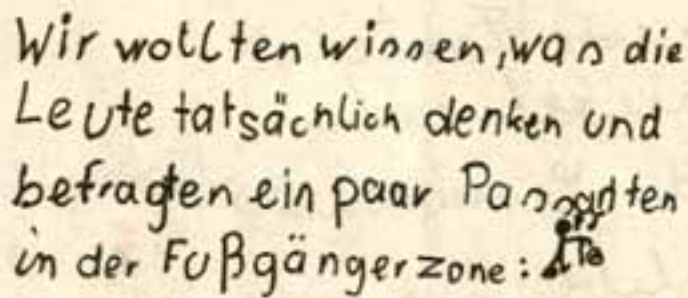 Wir wollten wissen, was die
Leute tatsächlich denken und
befragten ein paar Passanten
in der Fußgängerzone: